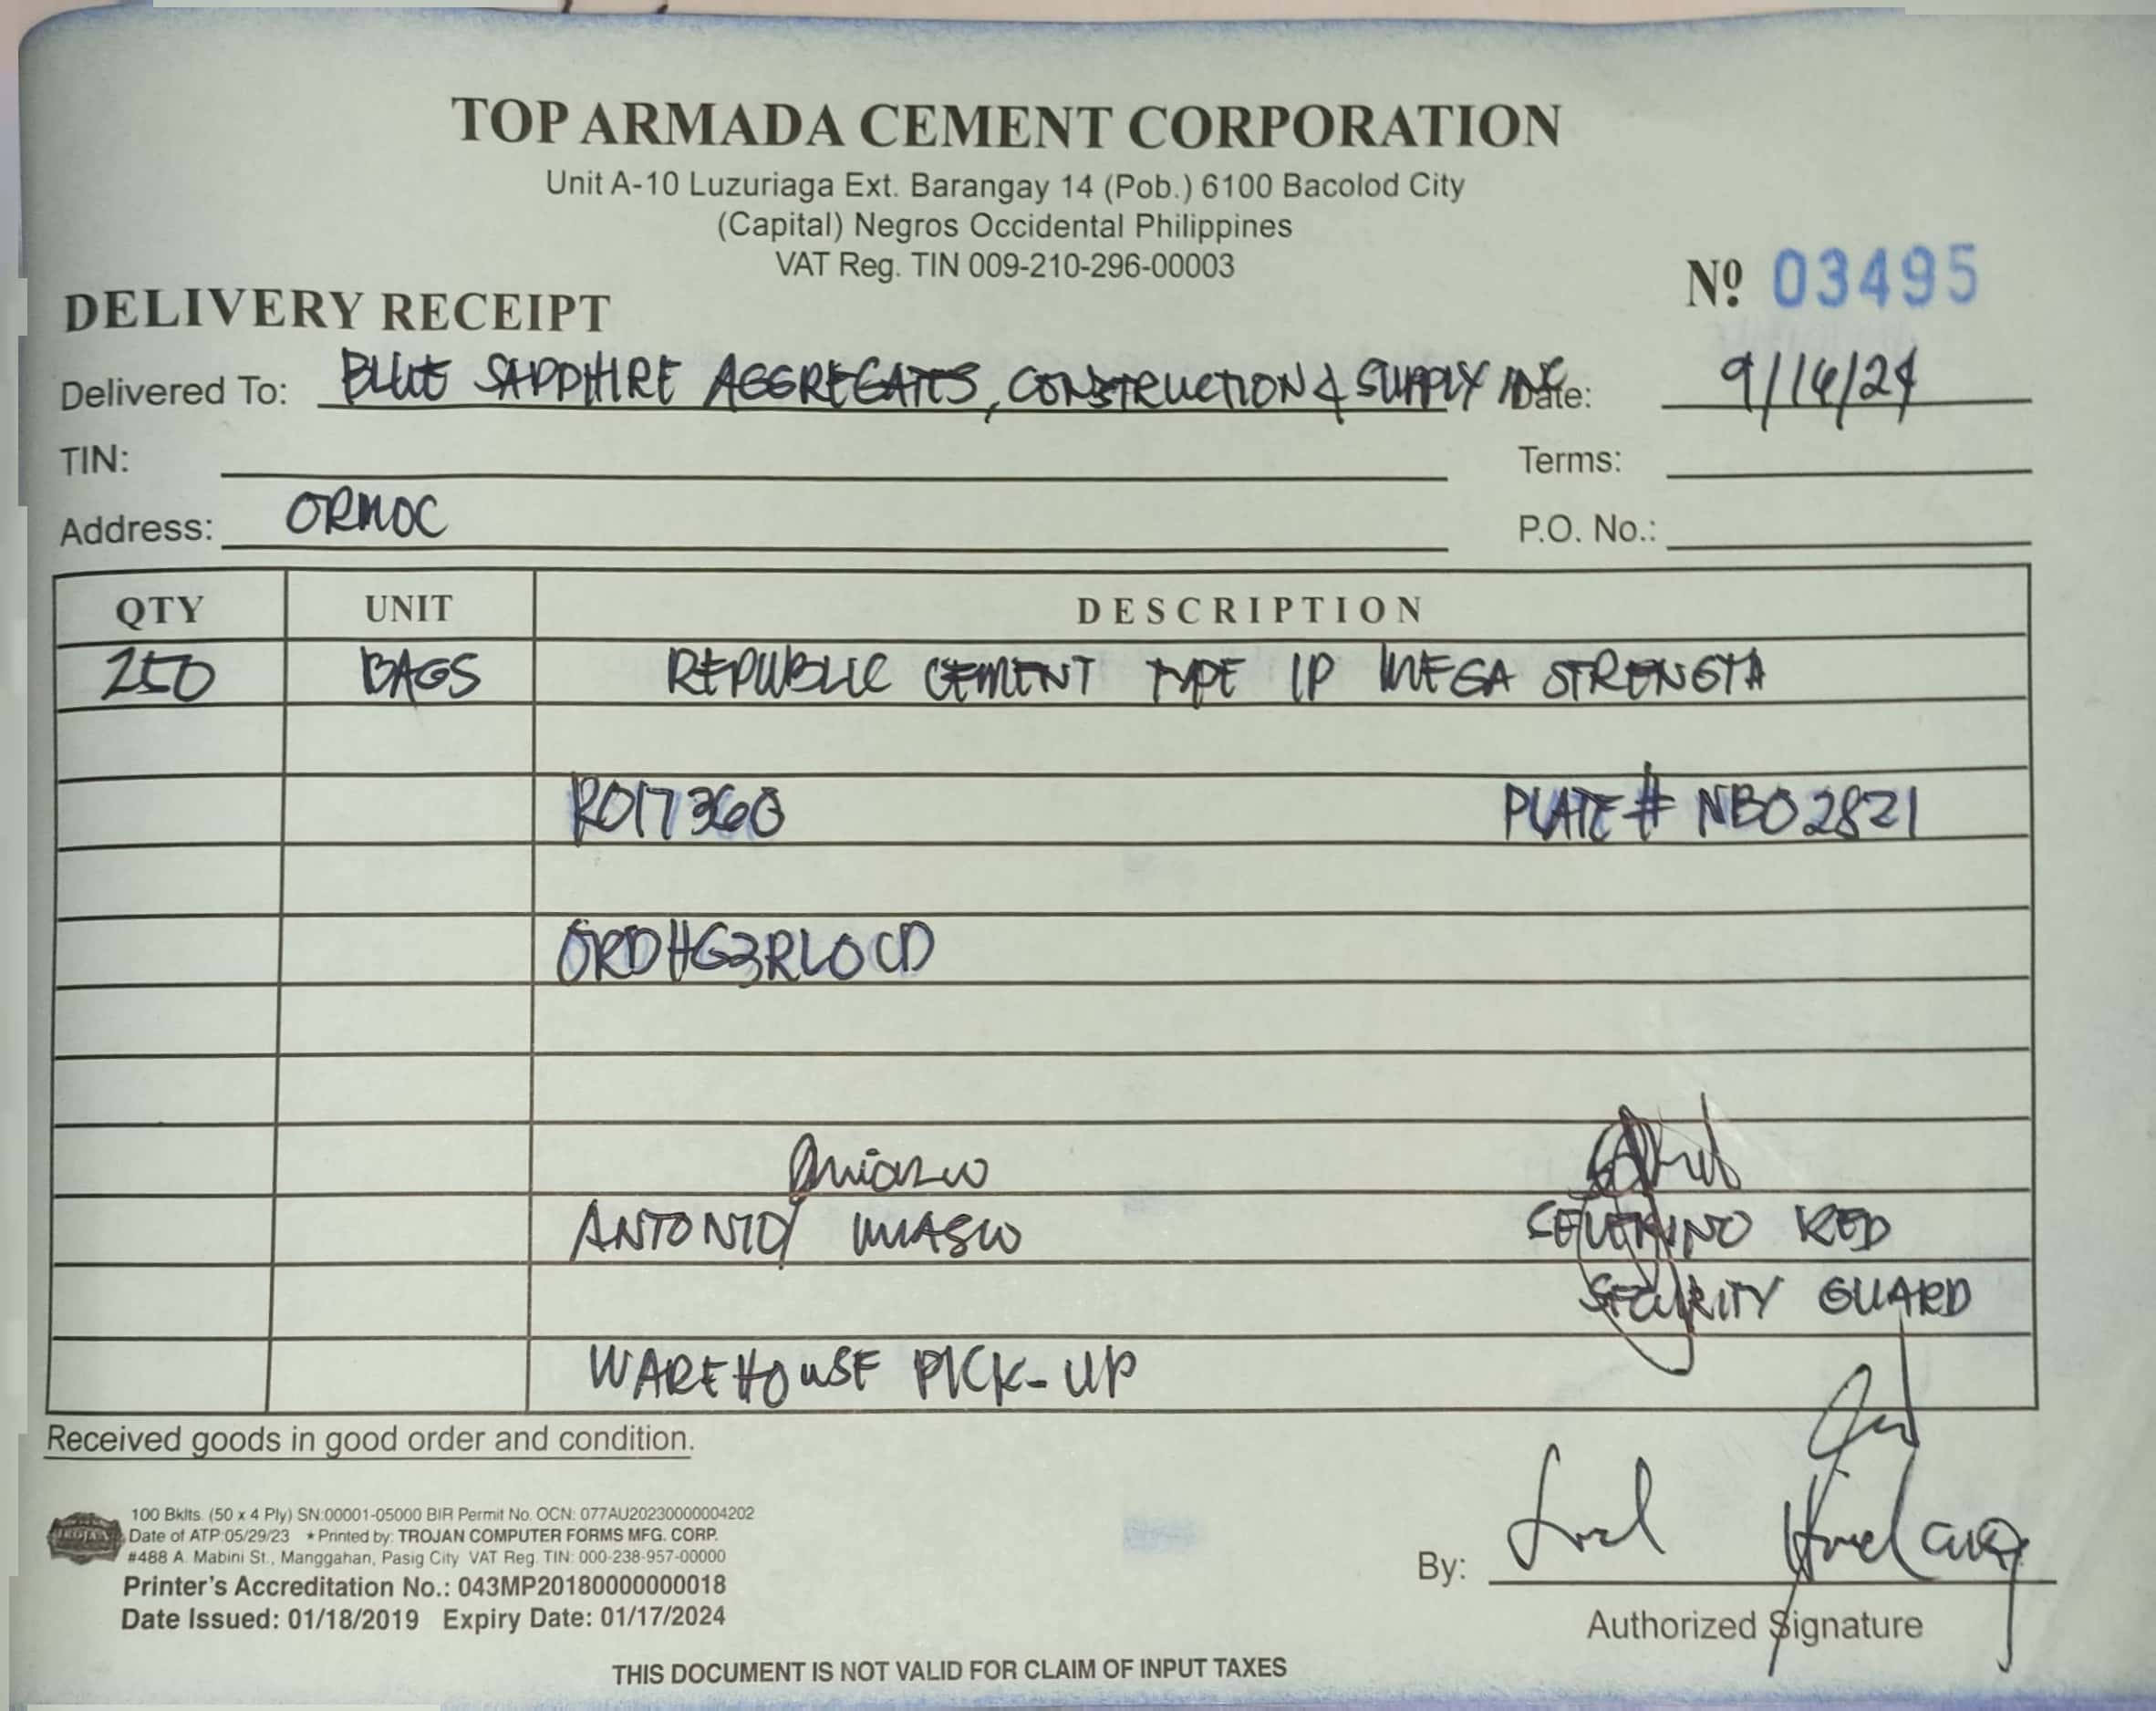 TOP ARMADA CEMENT CORPORATION
Unit A-10 Luzuriaga Ext. Barangay 14 (Pob.) 6100 Bacolod City
(Capital) Negros Occidental Philippines
VAT Reg. TIN 009-210-296-00003
Nº 03495
DELIVERY RECEIPT
Delivered To: BLUE SAPPHIRE AGGREGATES, CONSTRUCTION & SUPPLY INC Date: 9/14/24
TIN: Terms:
Address: ORMOC P.O. No.:
QTY UNIT DESCRIPTION
250 BAGS REPUBLIC CEMENT TYPE 1P MEGA STRENGTH
R017360 PLATE # NBO2821
ORDHG3RLOCD
ANTONIO SEVERINO RED
SECURITY GUARD
WAREHOUSE PICK-UP
Received goods in good order and condition.
100 Bklts. (50 x 4 Ply) SN:00001-05000 BIR Permit No. OCN: 077AU20230000004202
Date of ATP:05/29/23 ★Printed by: TROJAN COMPUTER FORMS MFG. CORP.
#488 A. Mabini St., Manggahan, Pasig City VAT Reg. TIN: 000-238-957-00000
Printer's Accreditation No.: 043MP20180000000018
Date Issued: 01/18/2019 Expiry Date: 01/17/2024
By:
Authorized Signature
THIS DOCUMENT IS NOT VALID FOR CLAIM OF INPUT TAXES